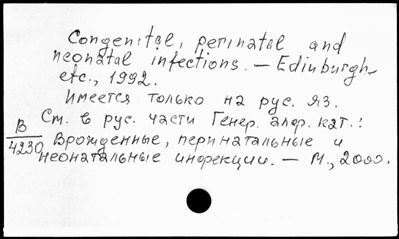 Congenital, perinatal and
neonatal infections. — Edinburgh
etc., 1992.
Имеется только на рус. яз.
См. в рус. части Генер. алф. кат.:
В
4230
Врожденные, перинатальные и
неонатальные инфекции. — М., 2000.